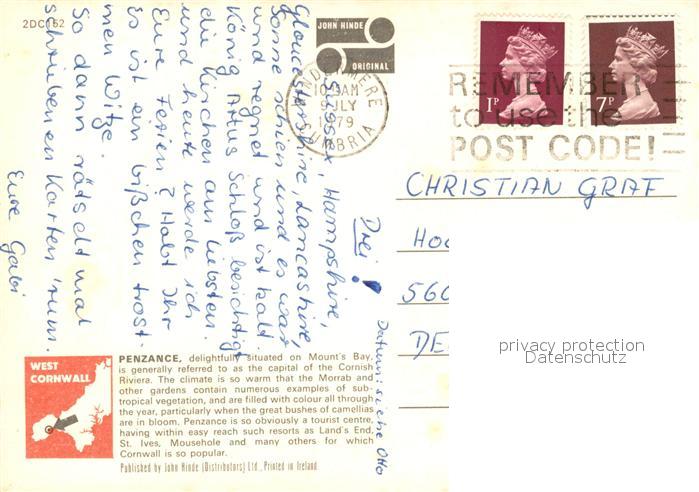 2DC152
JOHN HINDE
ORIGINAL
WINDERMERE
10 AM
9 JLY
1979
CUMBRIA
1P
7P
REMEMBER
to use the
POST CODE!
CHRISTIAN GRAF
Ho
560
DE
privacy protection
Datenschutz
Drei!
Datum: siehe Otto
Sussex, Hampshire,
Gloucestershire, Lancashire,
Sonne schien und es war
und regnet und ist kalt.
König Artus Schloß besichtigt
die Kirchen am liebsten.
und heute werde ich
Eure Ferien? Habt Ihr
Es ist ein bißchen trost.
men Witze.
So dann rätselt mal
schreiben en Karten 'rum.
Eure Gabi
WEST
CORNWALL
PENZANCE, delightfully situated on Mount's Bay,
is generally referred to as the capital of the Cornish
Riviera. The climate is so warm that the Morrab and
other gardens contain numerous examples of sub-
tropical vegetation, and are filled with colour all through
the year, particularly when the great bushes of camellias
are in bloom. Penzance is so obviously a tourist centre,
having within easy reach such resorts as Land's End,
St. Ives, Mousehole and many others for which
Cornwall is so popular.
Published by John Hinde (Distributors) Ltd., Printed in Ireland